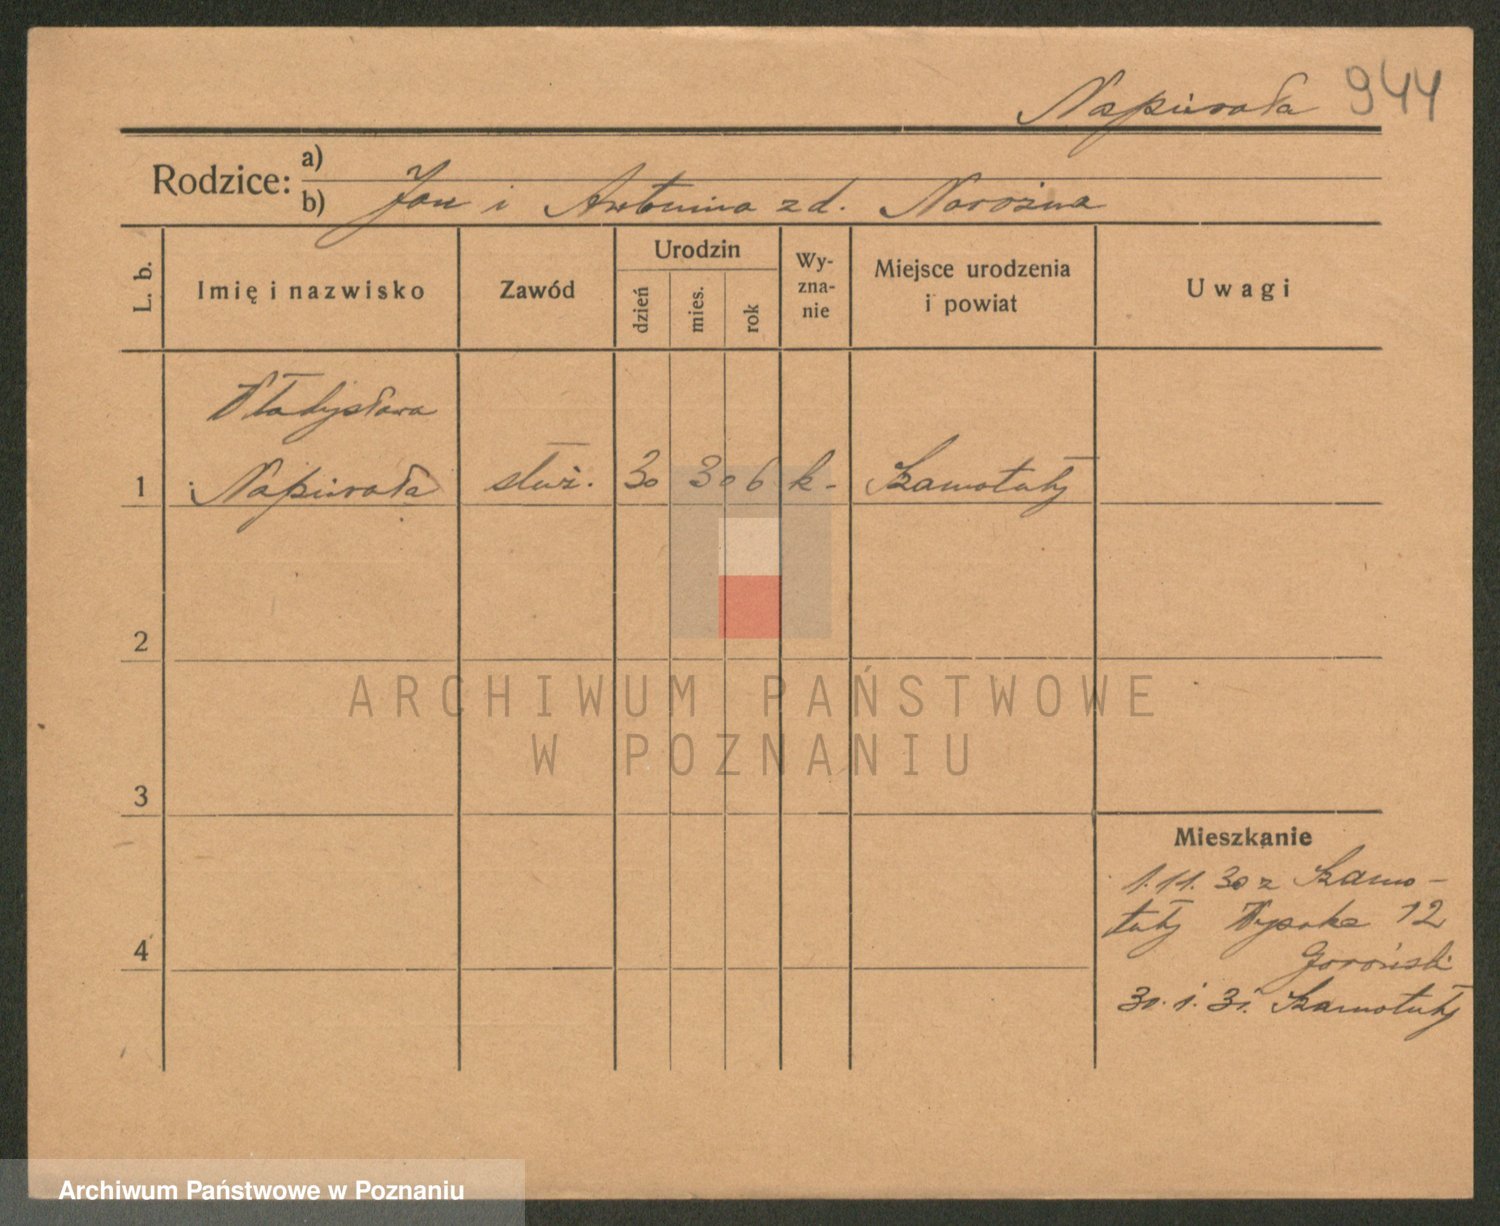 Napierała 944
Rodzice:
a)
b) Jan i Antonina z d. Narożna
L. b.
Imię i nazwisko
Zawód
Urodzin
dzień
mies.
rok
Wy-
zna-
nie
Miejsce urodzenia
i powiat
Uwagi
Władysława
1 Napierała służ. 30 3 06 k. Szamotuły
2
3
4
Mieszkanie
1.11.30 z Szamo-
tuły Wysoka 12
30.1.31. Szamotuły
ARCHIWUM PAŃSTWOWE
W POZNANIU
Archiwum Państwowe w Poznaniu